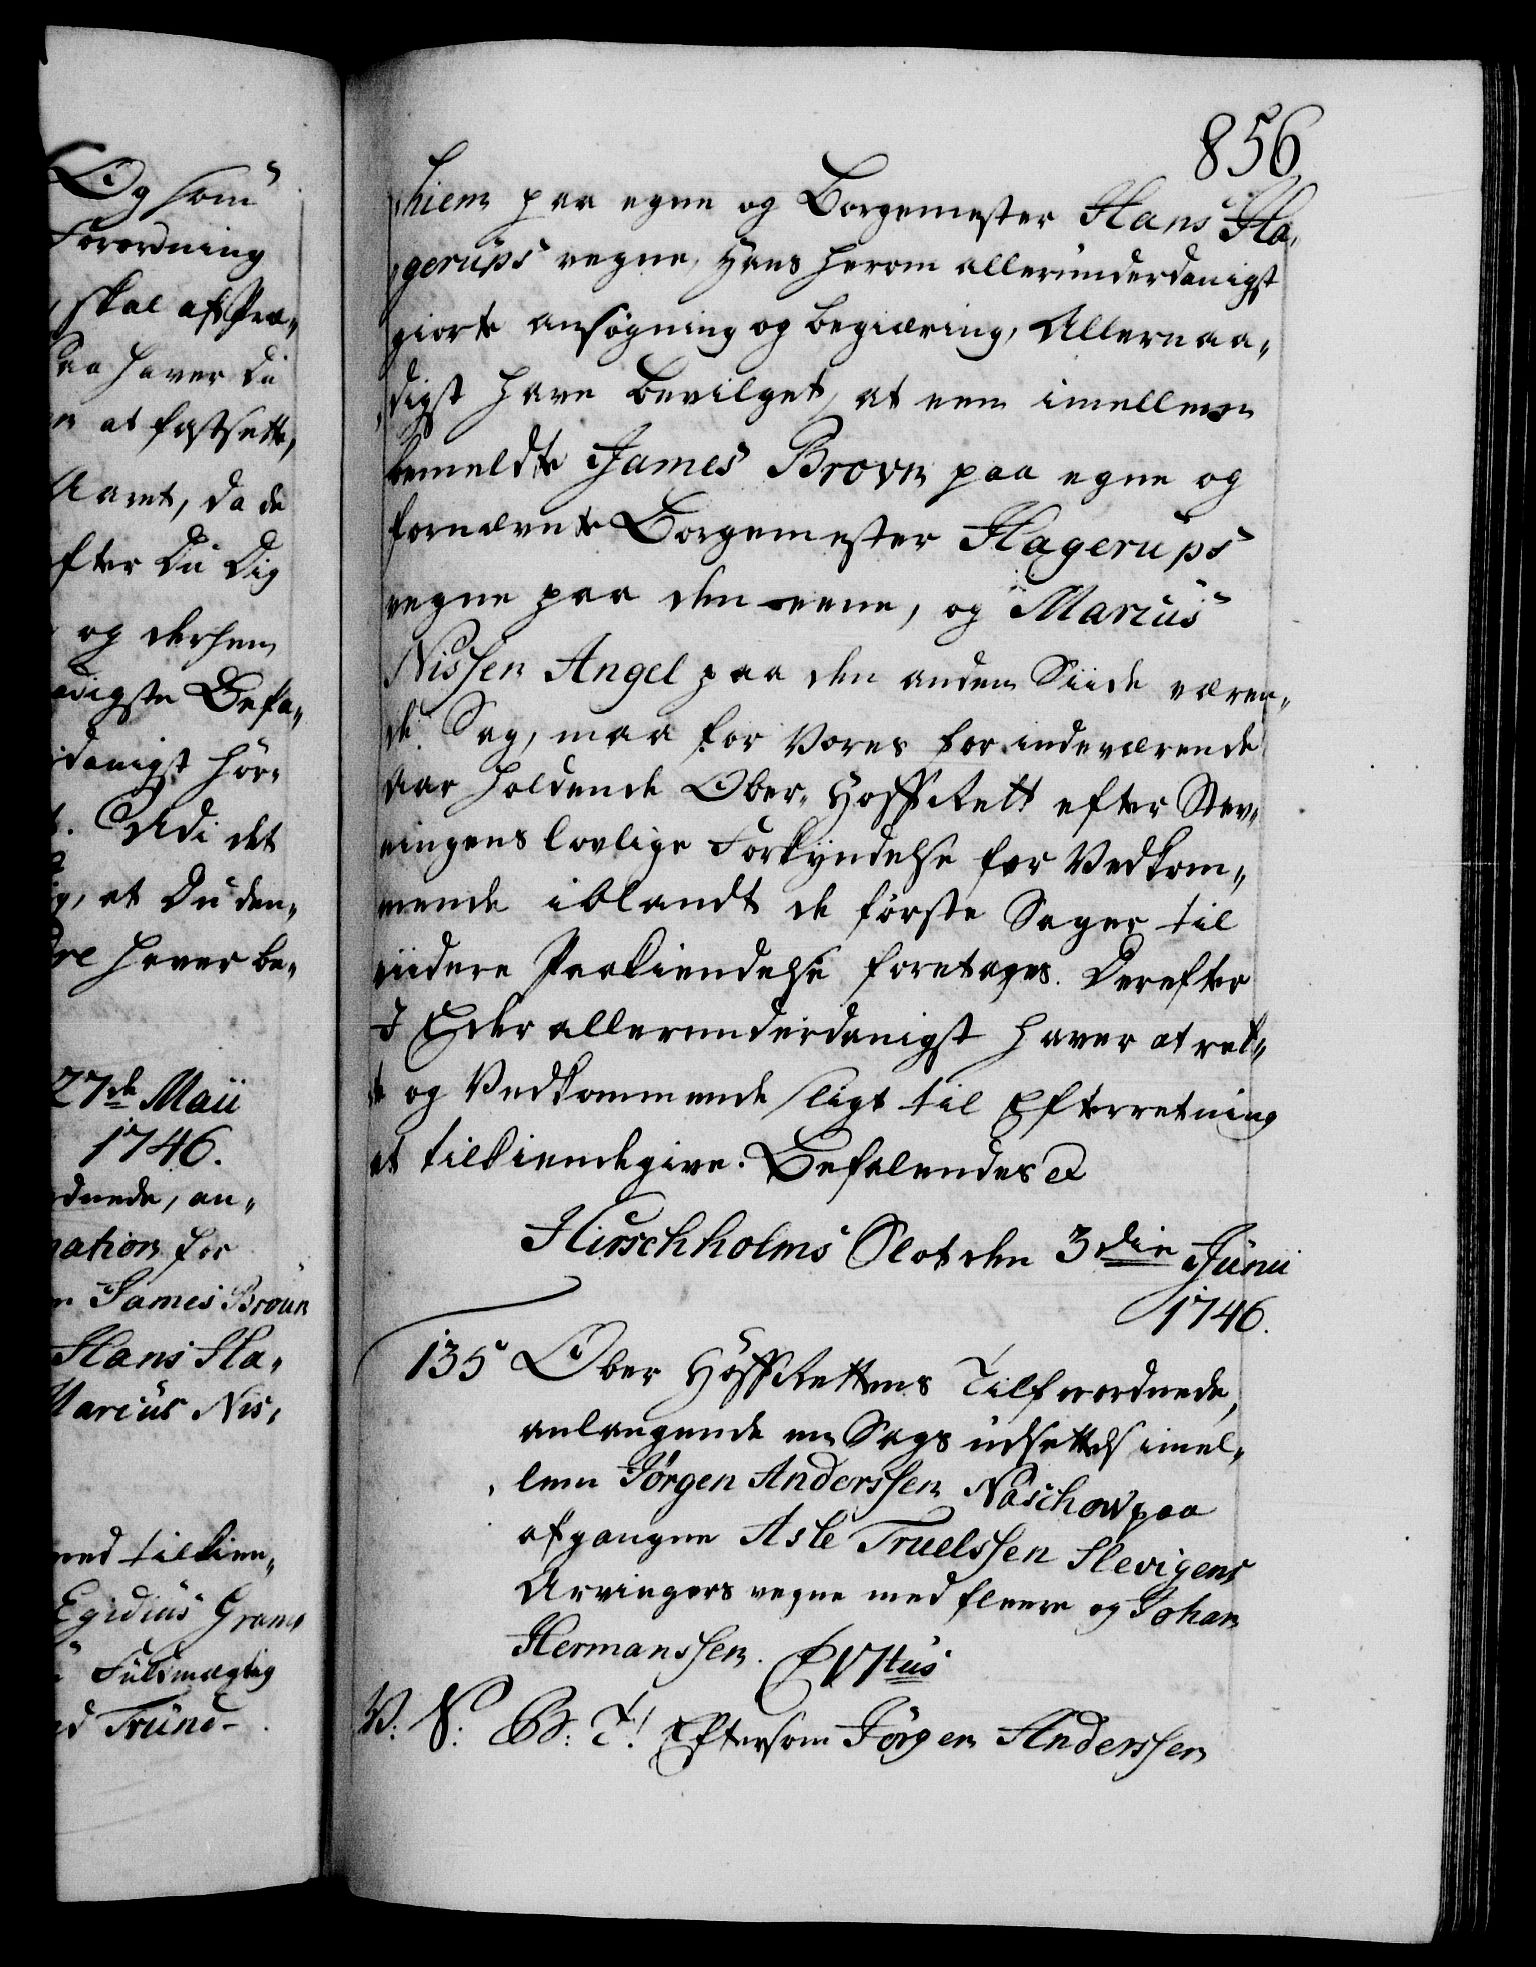 Og som
Forordning
skal af Præ,,
saa haver Du
at fastsette,
Aaret, da de
efter Du Dig
og dersom
digste Befa,,
danigst hör,
Udi det
, at Du den,,
haver be,,
27de Maii
1746.
ordnede, an,,
nation for
James Broun
Hans Ha,
Marcus Nis,
med tilkien,,
Egidius Gram
Fuldmægtig
Trund-
856
hiem paa egne og Borgemester Hans Ha,
gerups vegne, Hans herom allerunderdanigst
giorte ansögning og begiæring, Allernaa,,
digst have bevilget, at een imellem
bemeldte James Brovn paa egne og
fornævnte Borgemester Hagerups
vegne paa den eene, og Marcus
Nissen Angel paa den anden Siide væren,,
de Sag, maa for Vores for indeværende
Aar holdende Ober,, HoffRett efter Stev,,
ningens lovlige Forkyndelse for Vedkom,,
mende iblandt de förste Sager til
viidere Paakiendelse foretages. Derefter
I Eder allerunderdanigst haver at ret,,
te og Vedkommende sligt til Efterretning
at tilkiendegive. Befalendes etc
Hirschholms Slot den 3die Junii
1746.
135 Ober HoffRettens Tilforordnede,
anlangende en Sags udsettelse imel,,
lem Jørgen Anderssen Naschow paa
afgangne Asle Truelssen Slevigens
Arvingers vegne med fleere og Johan
Hermanssen. CVItus
V. S. B: T! Eftersom Jørgen Anderssen